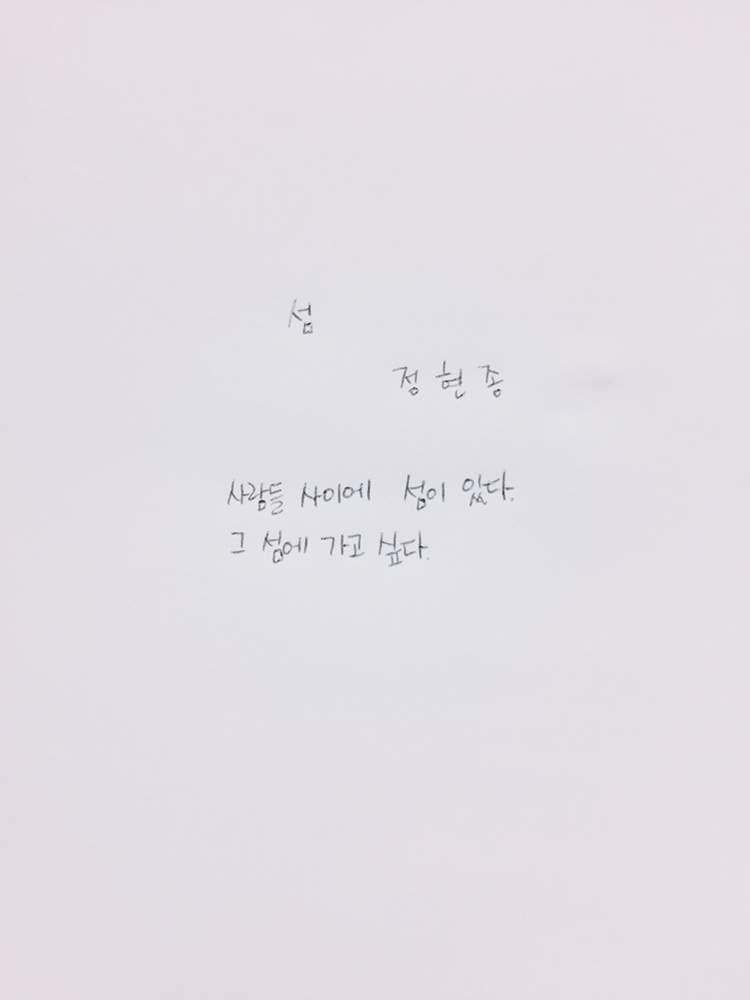 섬
정 현 종
사람들 사이에 섬이 있다.
그 섬에 가고 싶다.